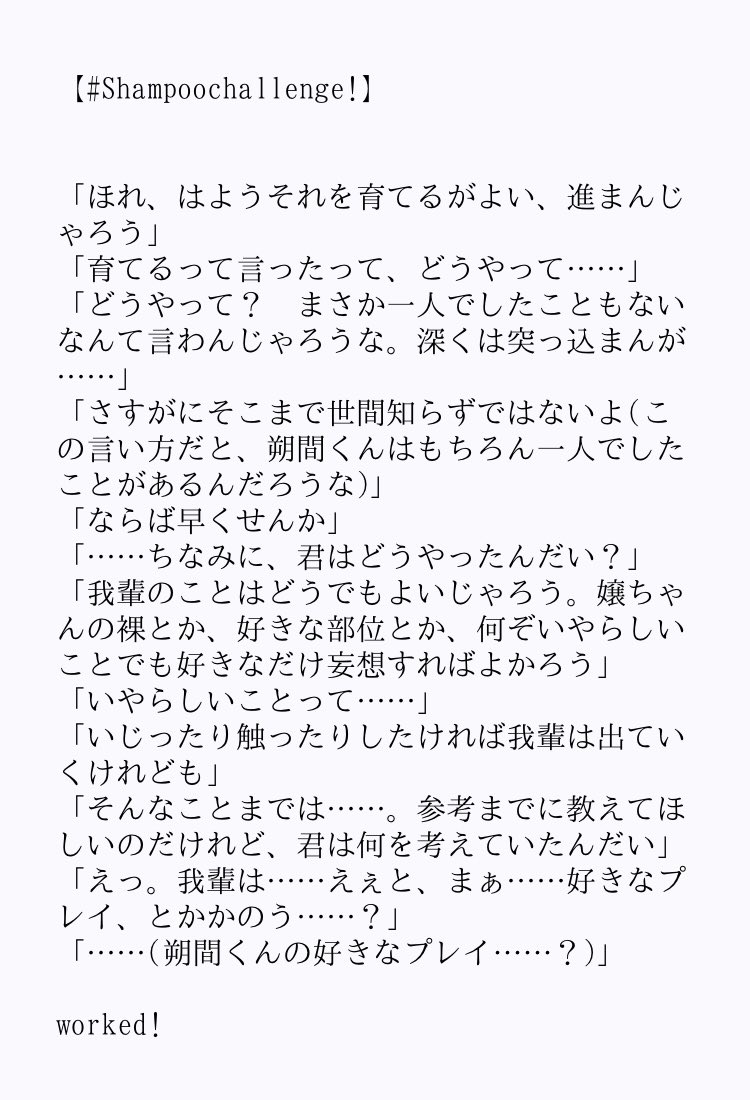 【#Shampoochallenge!】
「ほれ、はようそれを育てるがよい、進まんじ
ゃろう」
「育てるって言ったって、どうやって……」
「どうやって？　まさか一人でしたこともない
なんて言わんじゃろうな。深くは突っ込まんが
……」
「さすがにそこまで世間知らずではないよ(こ
の言い方だと、朔間くんはもちろん一人でした
ことがあるんだろうな)」
「ならば早くせんか」
「……ちなみに、君はどうやったんだい？」
「我輩のことはどうでもよいじゃろう。嬢ちゃ
んの裸とか、好きな部位とか、何ぞいやらしい
ことでも好きなだけ妄想すればよかろう」
「いやらしいことって……」
「いじったり触ったりしたければ我輩は出てい
くけれども」
「そんなことまでは……。参考までに教えてほ
しいのだけれど、君は何を考えていたんだい」
「えっ。我輩は……えぇと、まぁ……好きなプ
レイ、とかかのう……？」
「……(朔間くんの好きなプレイ……？)」
worked!